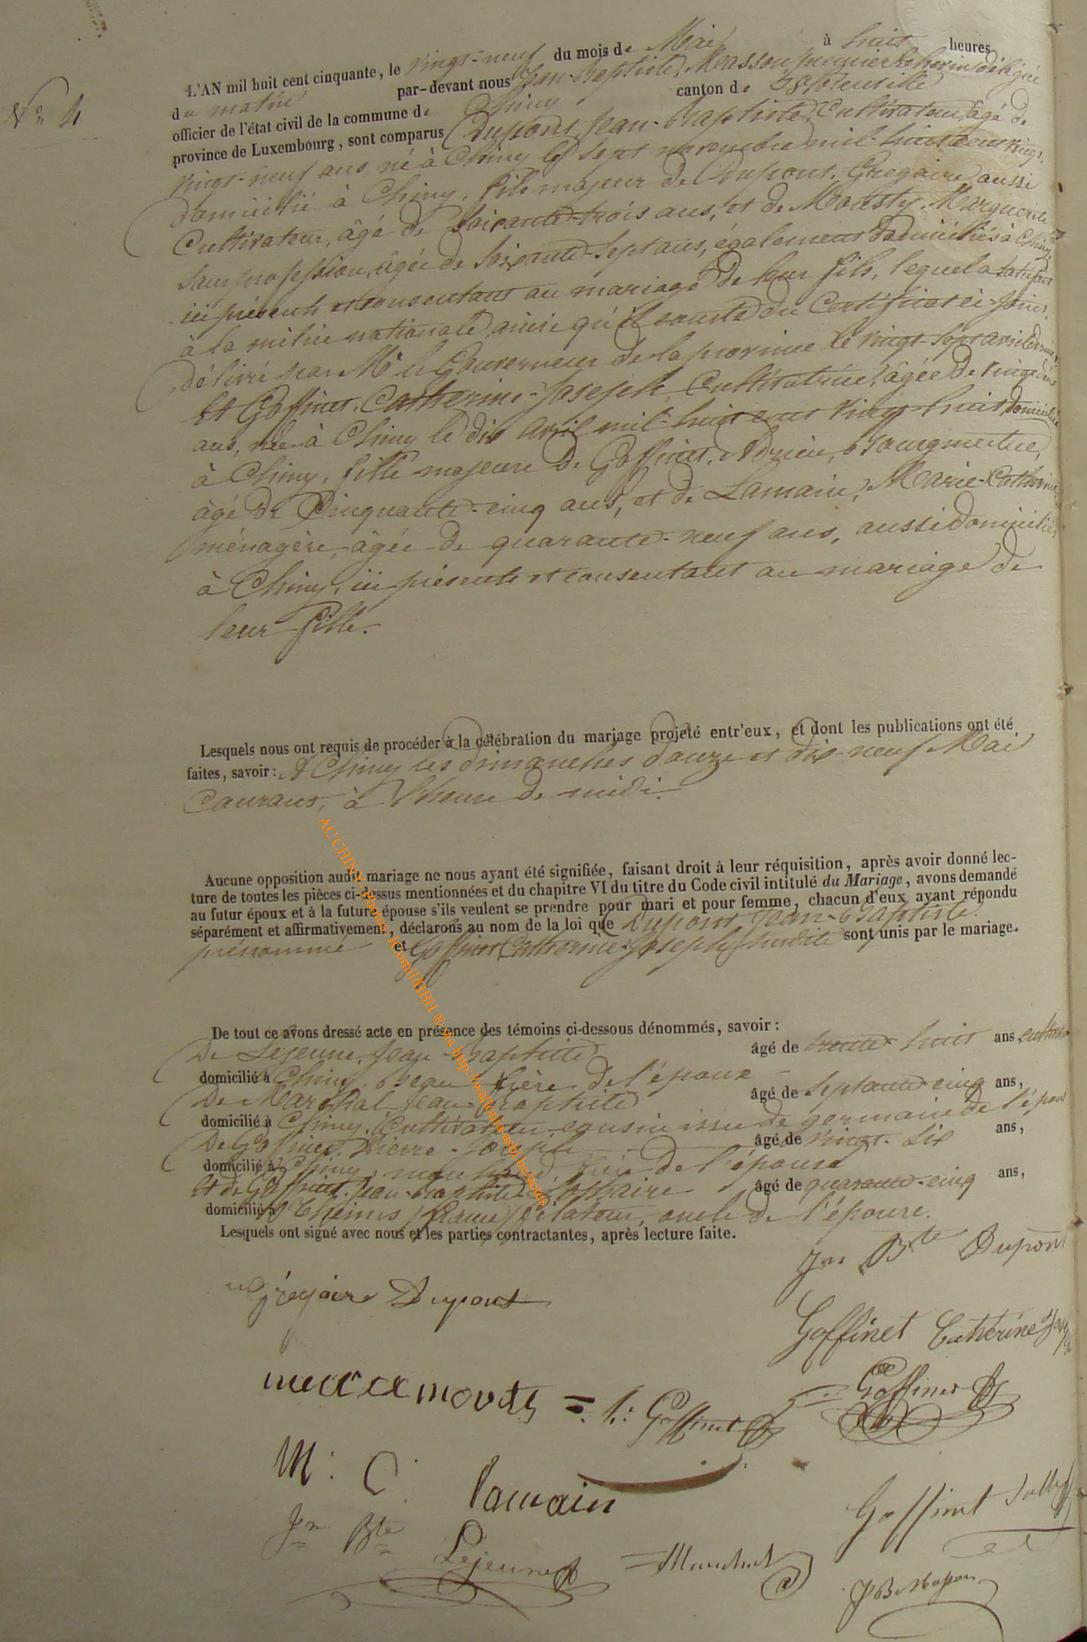 N° 4
L'AN mil huit cent cinquante, le vingt-neuf du mois de Mai à huit heures
du matin par-devant nous Jean-Baptiste Masson premier Echevin délégué
officier de l'état civil de la commune de Chiny canton de
province de Luxembourg, sont comparus Dupont, Jean-Baptiste, Cultivateur, âgé de
vingt-neuf ans, né à Chiny le sept novembre mil-huit cent vingt,
domicilié à Chiny, fils majeur de Dupont, Grégoire aussi
Cultivateur, âgé de soixante-trois ans, et de Marguerite
sans profession, âgée de soixante-sept ans, également domiciliés à Chiny
ici présents et consentant au mariage de leur fils, lequel a satisfait
à la milice nationale ainsi qu'il conste du Certificat ci-joint,
délivré par Mr le Gouverneur de la province le vingt-sept avril dernier
Et Goffinet, Catherine-Joseph, Cultivatrice, âgée de vingt-deux
ans, née à Chiny le dix avril mil-huit cent vingt-huit, domiciliée
à Chiny, fille majeure de Goffinet, Adrien, Bourgmestre,
âgé de Cinquante-cinq ans, et de Lamain, Marie-Catherine
ménagère, âgée de quarante-neuf ans, aussi domiciliés
à Chiny, ici présents et consentant au mariage de
leur fille.
Lesquels nous ont requis de procéder à la célébration du mariage projeté entr'eux, et dont les publications ont été
faites, savoir : A Chiny les dimanches douze et dix-neuf Mai
Courant, à l'heure de midi.
Aucune opposition audit mariage ne nous ayant été signifiée, faisant droit à leur réquisition, après avoir donné lec-
ture de toutes les pièces ci-dessus mentionnées et du chapitre VI du titre du Code civil intitulé du Mariage, avons demandé
au futur époux et à la future épouse s'ils veulent se prendre pour mari et pour femme, chacun d'eux ayant répondu
séparément et affirmativement, déclarons au nom de la loi que Dupont Jean-Baptiste
prénommé et Goffinet Catherine-Joseph susdite sont unis par le mariage.
De tout ce avons dressé acte en présence des témoins ci-dessous dénommés, savoir :
De Lejeune, Jean-Baptiste âgé de trente-huit ans
domicilié à Chiny, beau-frère de l'époux
De Maréchal Jean-Baptiste âgé de septante cinq ans,
domicilié à Chiny, Cultivateur cousin issu de germain de l'époux
De Goffinet, Pierre-Joseph âgé de vingt-six ans,
domicilié à Chiny, frère de l'épouse
Et de Goffinet, Jean-Baptiste Lothaire âgé de quarante-cinq ans,
domicilié à filateur, oncle de l'épouse.
Lesquels ont signé avec nous et les parties contractantes, après lecture faite.
Jn Bte Dupont
Grégoire Dupont
Goffinet Catherine
Goffinet
Goffinet
M: C: Lamain
Goffinet
Jn Bte Lejeune
JB Masson